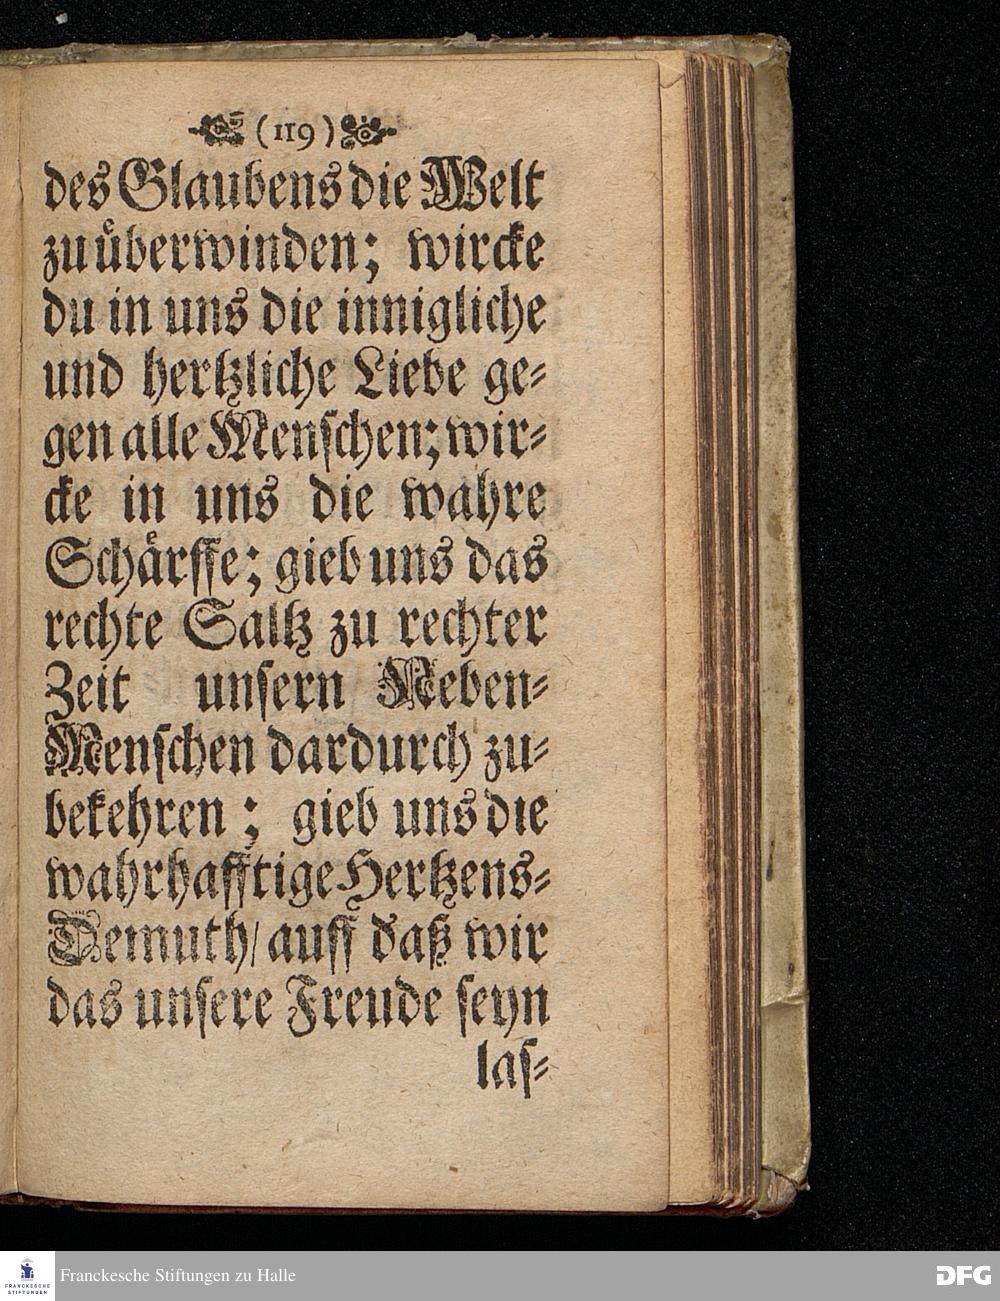 (119)
des Glaubens die Welt
zu uͤberwinden; wircke
du in uns die innigliche
und hertzliche Liebe ge-
gen alle Menschen; wir-
cke in uns die wahre
Schaͤrffe; gieb uns das
rechte Saltz zu rechter
Zeit unsern Neben-
Menschen dardurch zu-
bekehren; gieb uns die
wahrhafftige Hertzens-
Demuth/ auff daß wir
das unsere Freude seyn
las-
FRANCKESCHE
STIFTUNGEN
Franckesche Stiftungen zu Halle
DFG